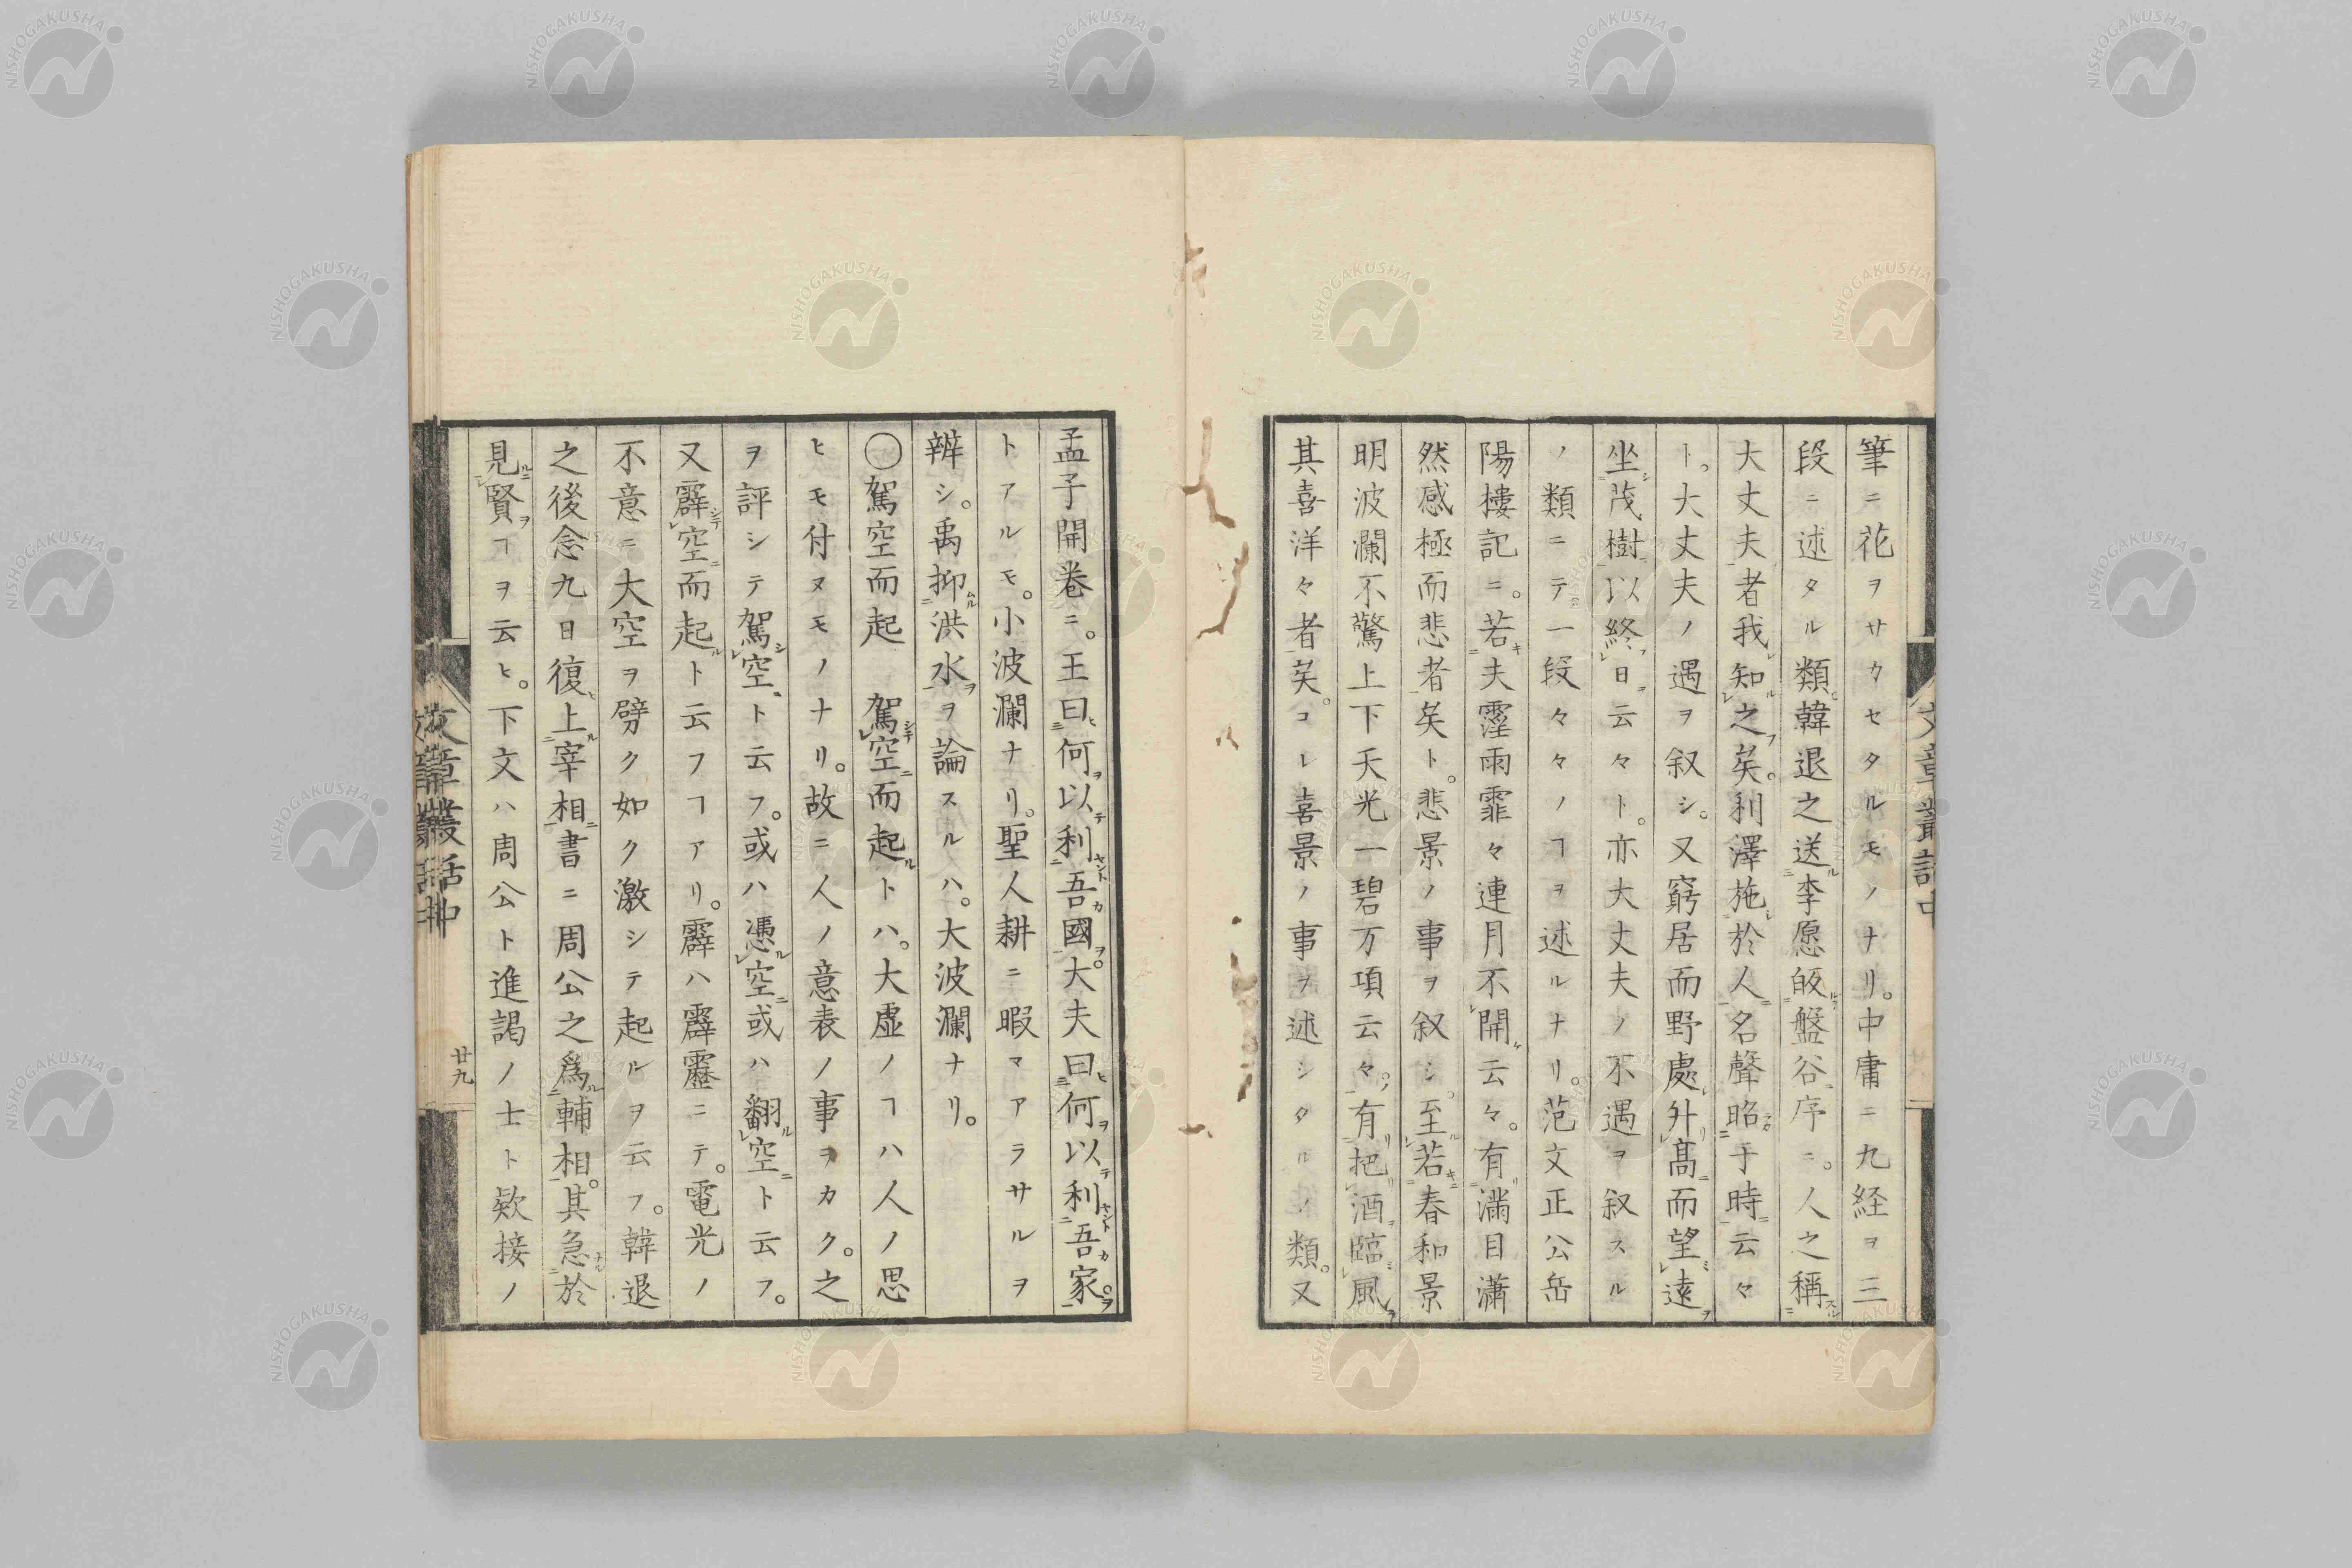 筆ニ花ヲサカセタルモノナリ。中庸ニ九経ヲ三
段ニ述タル類。韓退之送李愿皈盤谷序ニ。人之稱
大丈夫者我知之矣。利澤施於人名聲昭于時云々
ト。大丈夫ノ遇ヲ叙シ。又窮居而野處升髙而望遠
坐茂樹以終日云々ト。亦大丈夫ノ不遇ヲ叙スル
ノ類ニテ。一段々々ノヿヲ述ルナリ。范文正公岳
陽樓記ニ。若夫霪雨霏々連月不開云々。有滿目瀟
然感極而悲者矣ト。悲景ノ事ヲ叙シ。至若春和景
明波瀾不驚上下天光一碧万項云々。有把酒臨風
其喜洋々者矣。コレ喜景ノ事ヲ述シタルノ類。又
孟子開卷ニ。王曰何以利吾國。大夫曰何以利吾家。
トアルモ。小波瀾ナリ。聖人耕ニ暇マアラサルヲ
辨シ。禹抑洪水ヲ論スルハ。大波瀾ナリ。
〇駕空而起　駕空而起トハ。大虚ノヿハ人ノ思
ヒモ付ヌモノナリ。故ニ人ノ意表ノ事ヲカク。之
ヲ評シテ駕空ト云フ。或ハ憑空或ハ翻空ト云フ。
又霹空而起ト云フヿアリ。霹ハ霹靂ニテ。電光ノ
不意ニ大空ヲ劈ク如ク激シテ起ルヲ云フ。韓退
之後念九日復上宰相書ニ周公之爲輔相。其急於
見賢ヿヲ云ヒ。下文ハ周公ト進謁ノ士ト欵接ノ
文章叢話中
廿九
NISHOGAKUSHA